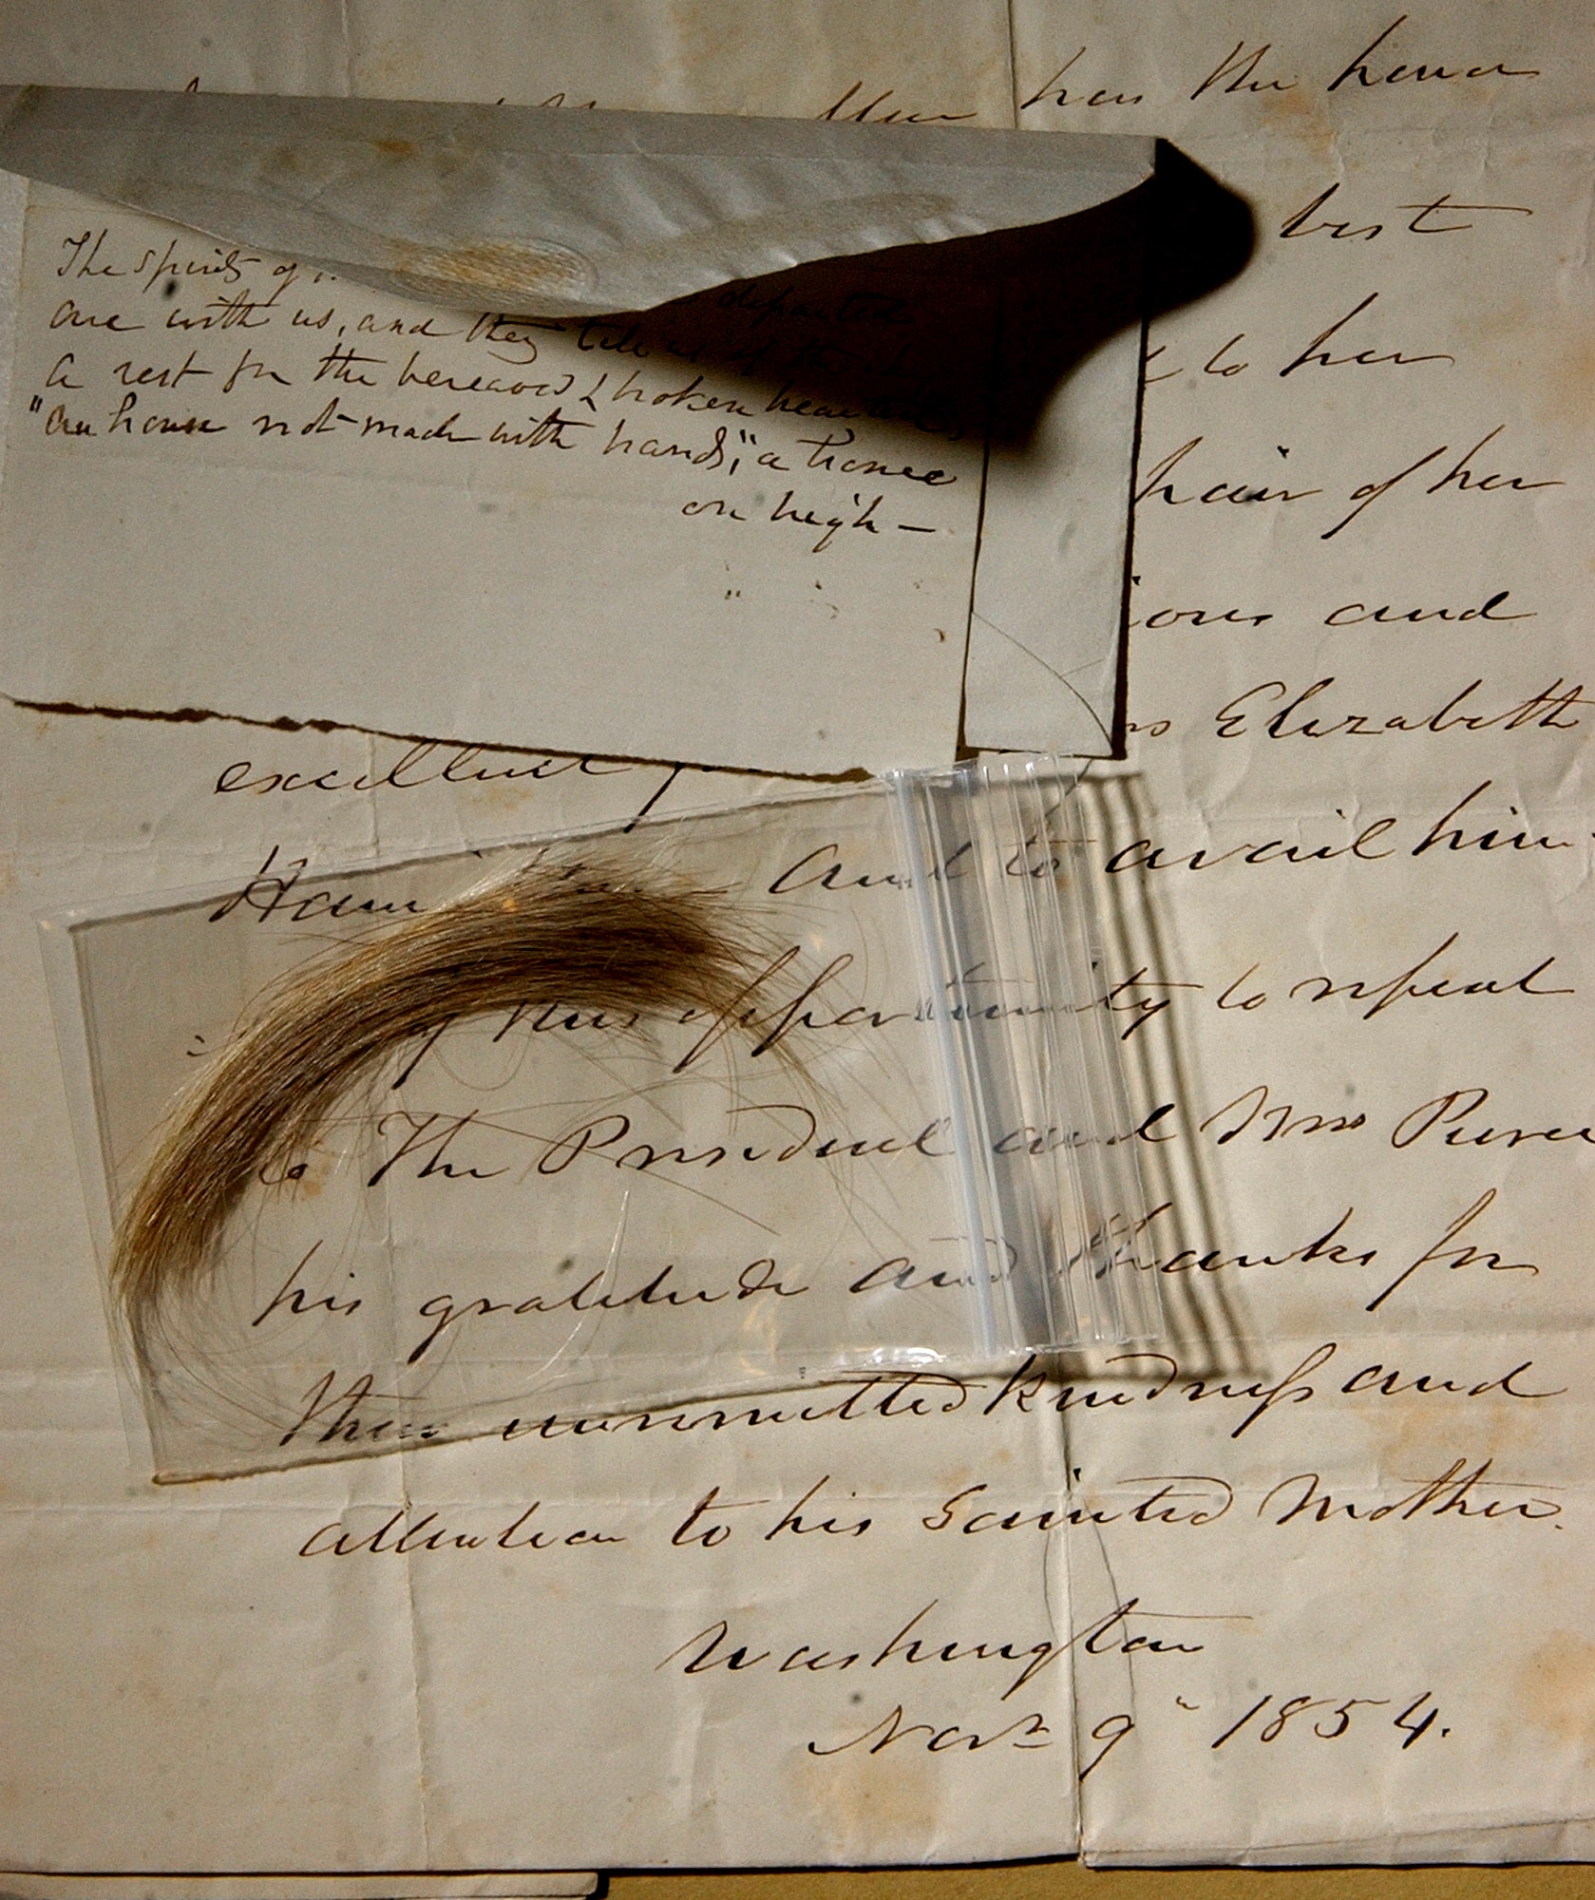 has the honor
best
The spirits of
departed
are with us, and they tell us of
to her
a rest for the bereaved & broken hearted
"an house not made with hands", a home
hair of her
on high —
and
Elizabeth
excellent
and to avail him
of this opportunity to repeat
to The President and Mrs Pierce
his gratitude and thanks for
their unremitted kindness and
attention to his Sainted Mother.
Washington
Novr 9" 1854.